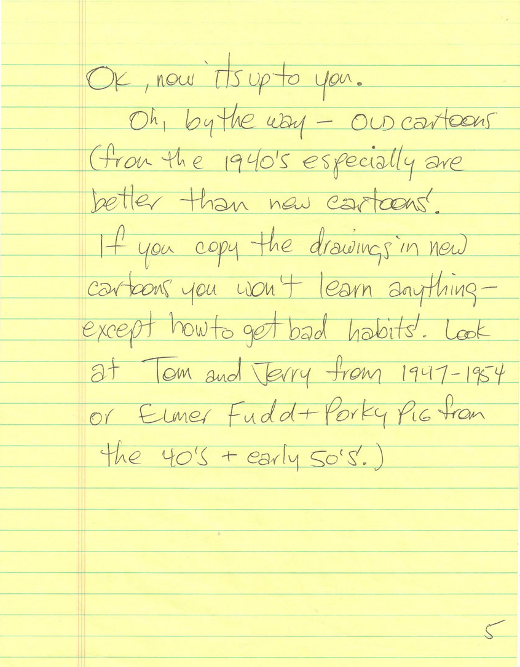 OK, now it's up to you.
Oh, by the way - OLD cartoons
(from the 1940's especially are
better than new cartoons.
If you copy the drawings in new
cartoons you won't learn anything -
except how to get bad habits. Look
at Tom and Jerry from 1947-1954
or Elmer Fudd + Porky Pig from
the 40's + early 50's.)
5